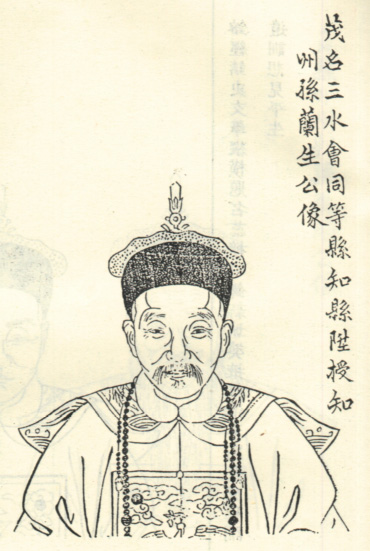 茂名三水會同等縣知縣陞授知
州孫蘭生公像